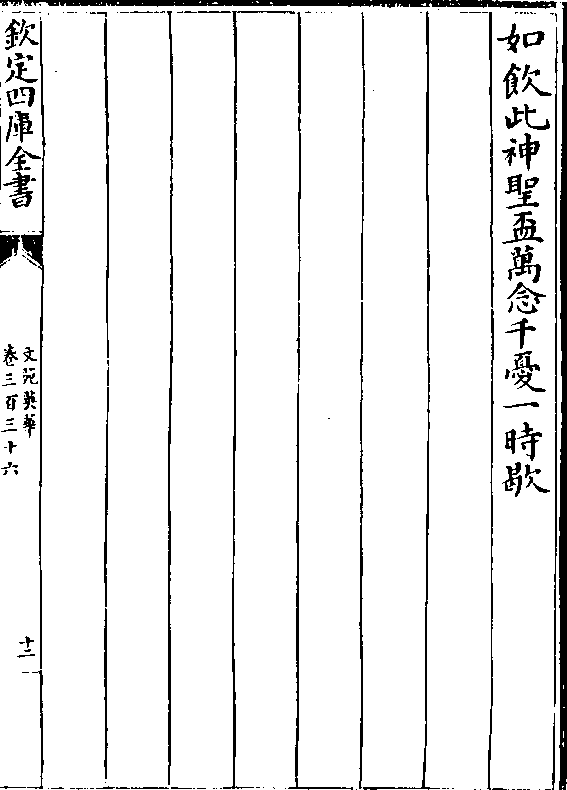 如飲此神聖盃萬念千憂一時歇
欽定四庫全書
文苑英華
卷三百三十六
十二